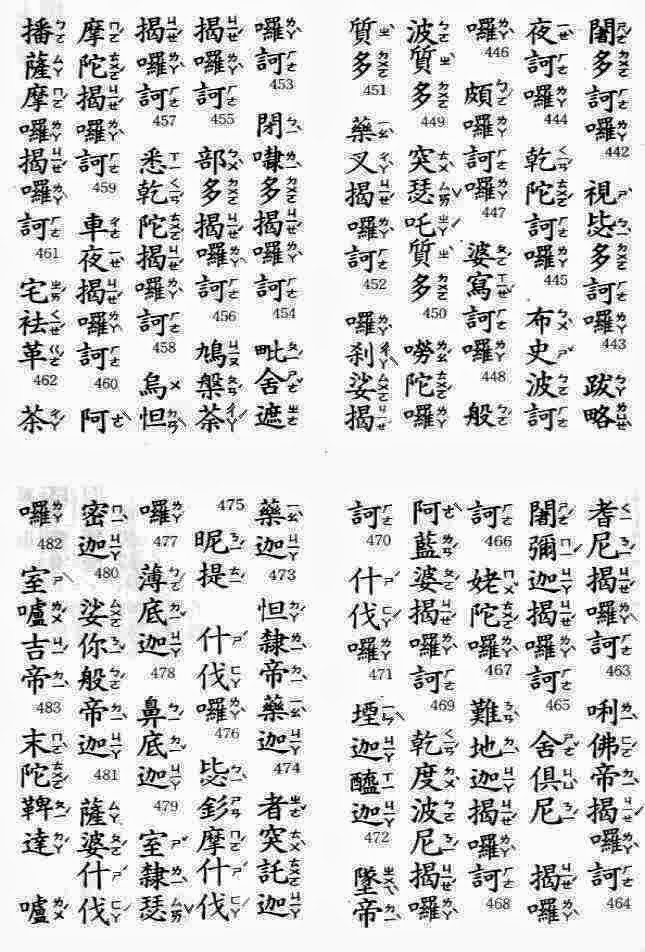 闍多訶囉 442 視毖多訶囉 443 跋略
夜訶囉 444 乾陀訶囉 445 布史波訶
囉 446 頗囉訶囉 447 婆寫訶囉 448 般
波質多 449 突瑟吒質多 450 嘮陀囉
質多 451 藥叉揭囉訶 452 囉剎娑揭
囉訶 453 閉嚟多揭囉訶 454 毗舍遮
揭囉訶 455 部多揭囉訶 456 鳩槃茶
揭囉訶 457 悉乾陀揭囉訶 458 烏怛
摩陀揭囉訶 459 車夜揭囉訶 460 阿
播薩摩囉揭囉訶 461 宅袪革 462 茶
耆尼揭囉訶 463 唎佛帝揭囉訶 464
闍彌迦揭囉訶 465 舍俱尼揭囉
訶 466 姥陀囉 467 難地迦揭囉訶 468
阿藍婆揭囉訶 469 乾度波尼揭囉
訶 470 什伐囉 471 堙迦醯迦 472 墜帝
藥迦 473 怛隸帝藥迦 474 者突託迦
475 昵提什伐囉 476 毖釤摩什伐
囉 477 薄底迦 478 鼻底迦 479 室隸瑟
密迦 480 娑你般帝迦 481 薩婆什伐
囉 482 室嚧吉帝 483 末陀鞞達嚧